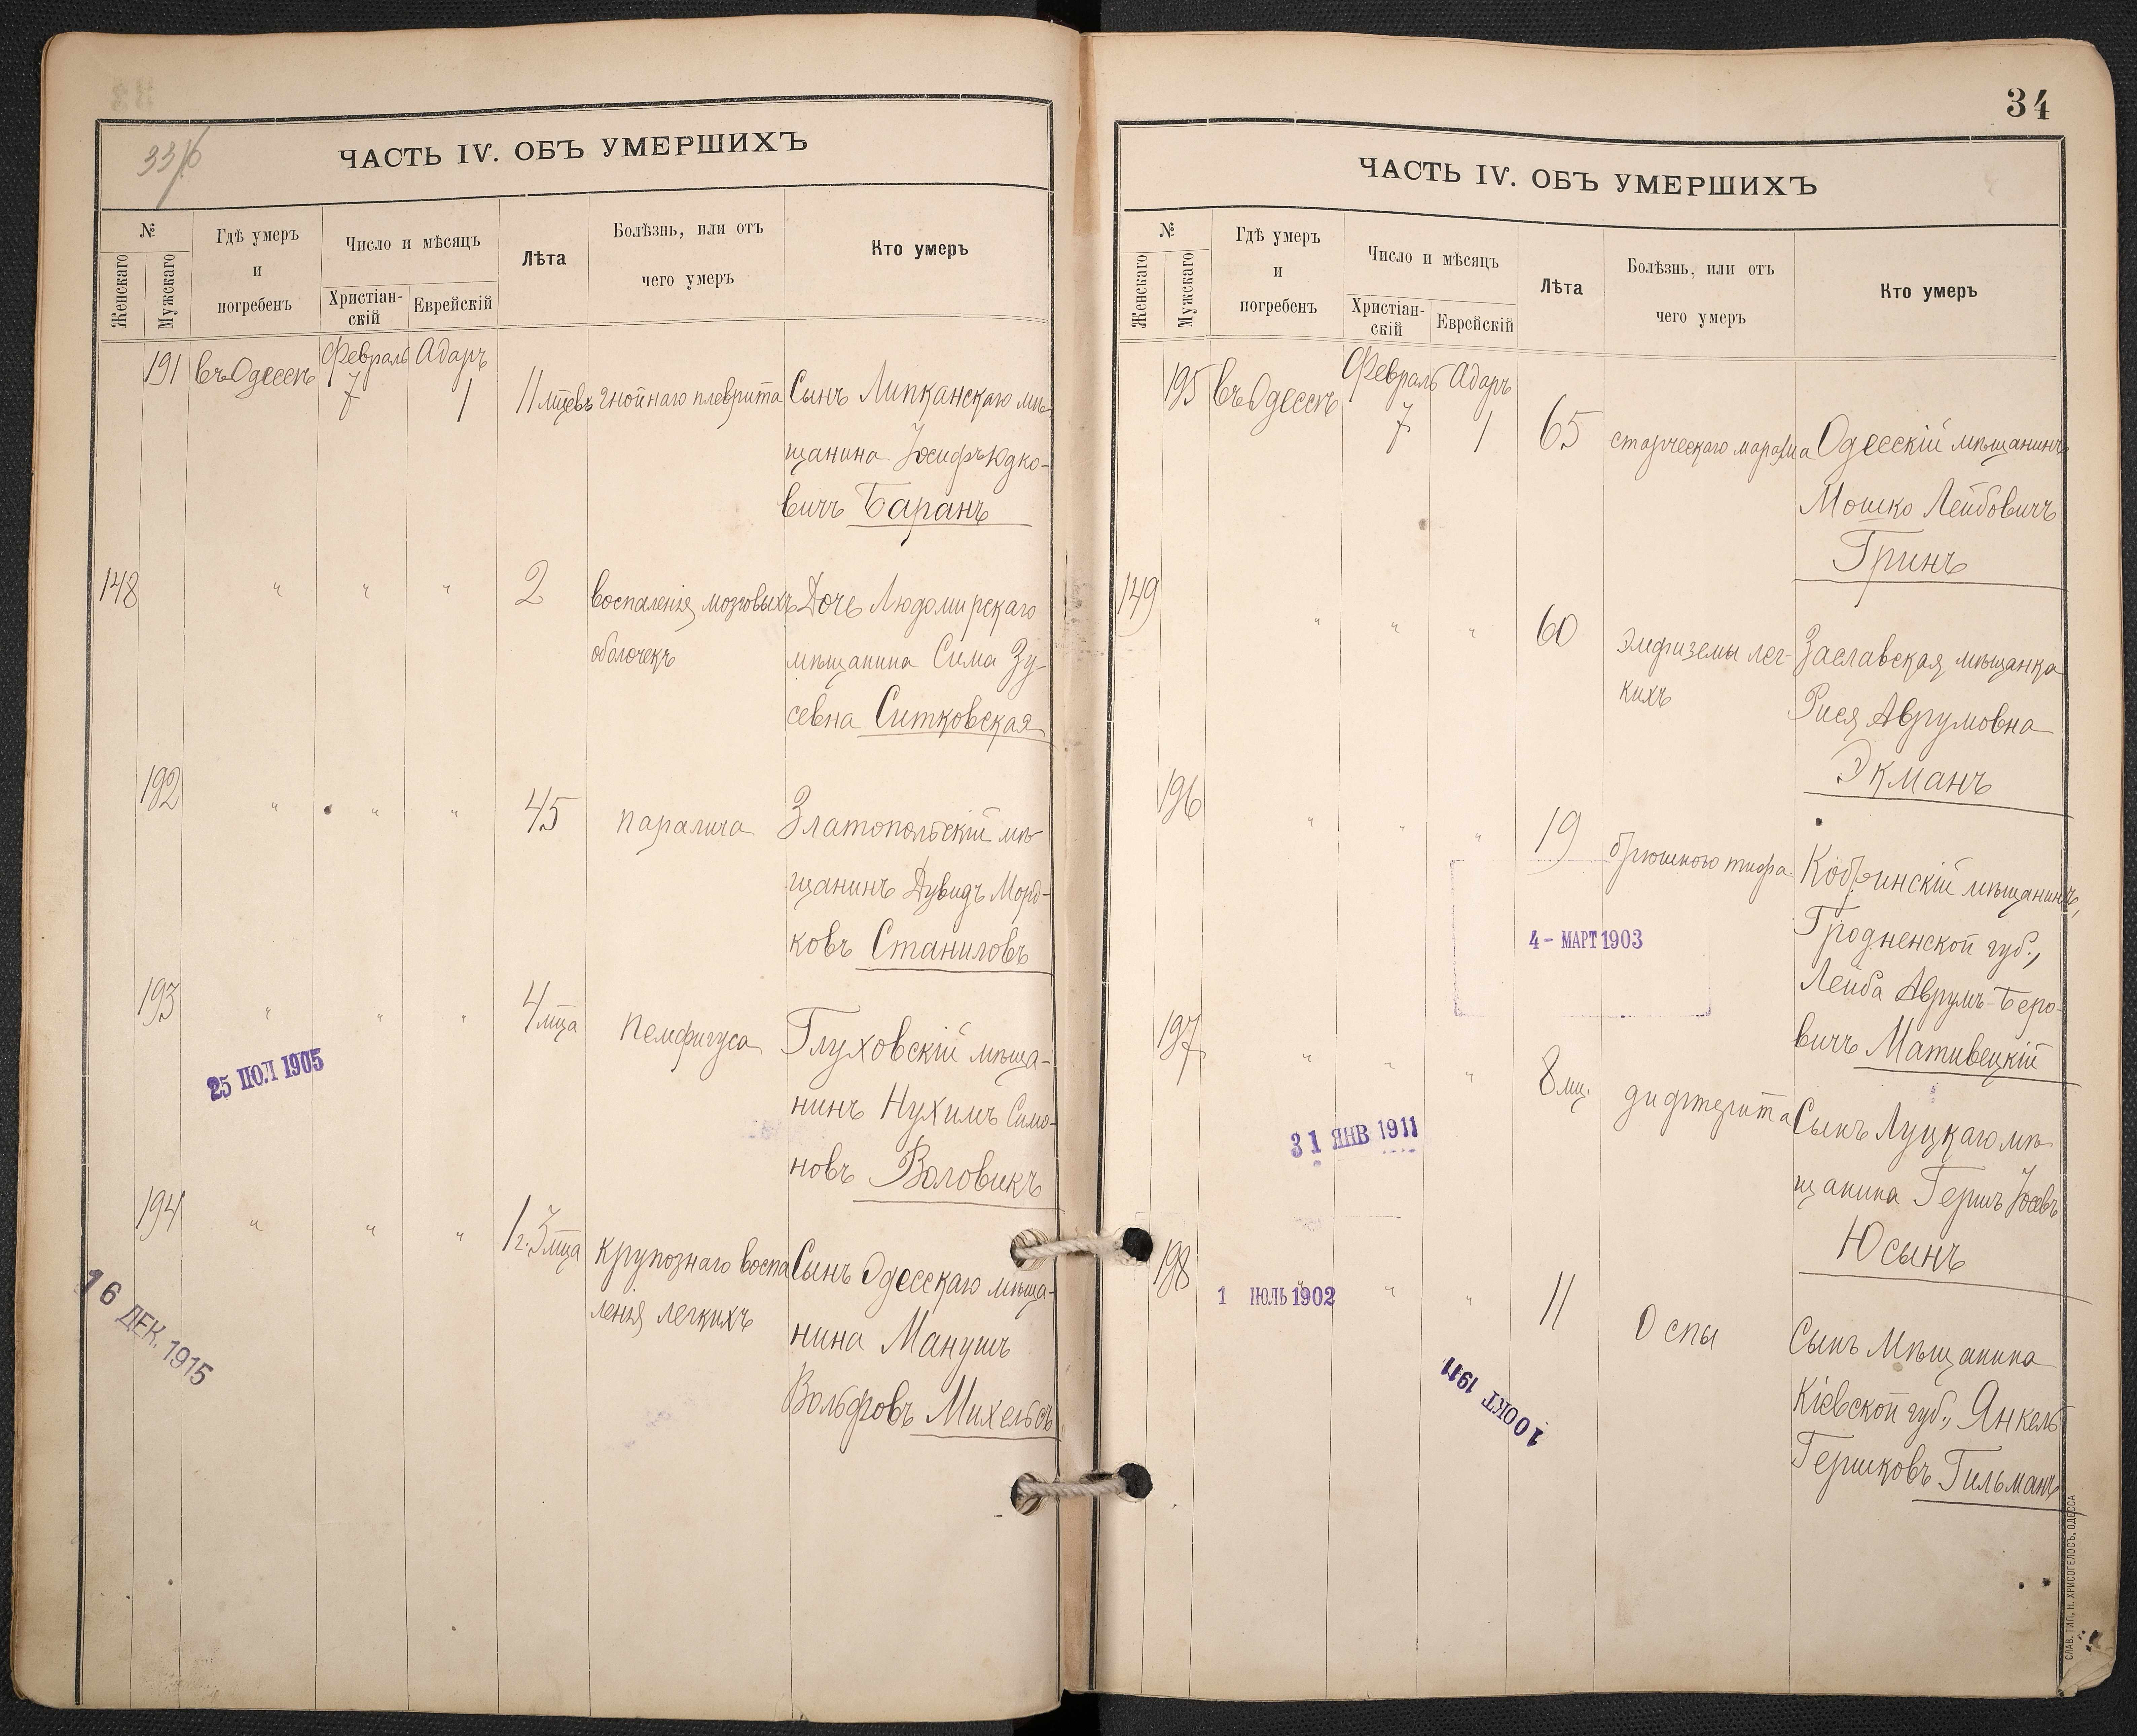 33/б
ЧАСТЬ IV. ОБЪ УМЕРШИХЪ
№
Женскаго
Мужскаго
Гдѣ умеръ
и
погребенъ
Число и мѣсяцъ
Христіан-
скій
Еврейскій
Лѣта
Болѣзнь, или отъ
чего умеръ
Кто умеръ
191 въ Одессѣ Февраль 7 Адаръ 1 11 мцевъ гнойнаго плеврита Сынъ Липканскаго мѣ-
щанина Іосифъ Юдко-
вичъ Баранъ
148 " " " 2 воспаленія мозговыхъ Дочь Людомирскаго
оболочекъ мѣщанина Сима Зу-
севна Ситковская
192 " " " 45 паралича Златопольскій мѣ-
щанинъ Дувидъ Морд-
ковъ Станиловъ
193 " " " 4 мца пемфигуса Глуховскій мѣща-
нинъ Нухимъ Симо-
новъ Воловикъ
25 ІЮЛ 1905
194 " " " 1 г. 3 мца крупознаго воспа Сынъ Одесскаго мѣща-
ленія легкихъ нина Манушъ
Вольфовъ Михельсъ
16 ДЕК. 1915
34
ЧАСТЬ IV. ОБЪ УМЕРШИХЪ
№
Женскаго
Мужскаго
Гдѣ умеръ
и
погребенъ
Число и мѣсяцъ
Христіан-
скій
Еврейскій
Лѣта
Болѣзнь, или отъ
чего умеръ
Кто умеръ
195 въ Одессѣ Февраль 7 Адаръ 1 65 старческаго маразма Одесскій мѣщанинъ
Мошко Лейбовичъ
Гринъ
149 " " " 60 эмфиземы лег- Заславская мѣщанка
кихъ Рися Аврумовна
Экманъ
196 " " " 19 брюшного тифа Кобринскій мѣщанинъ,
Гродненской губ.,
Лейба Аврумъ-Беро-
вичъ Мативецкій
4 - МАРТ 1903
197 " " " 8 мц. дифтерита Сынъ Луцкаго мѣ-
щанина Гершъ Іосевъ
Юсынъ
31 ЯНВ 1911
198 " " " 11 Оспы Сынъ Мѣщанина
Кіевской губ., Янкель
Гершковъ Гильманъ
1 ІЮЛЬ 1902
10 ОКТ 1911
СЛАВ. ТИП. Н. ХРИСОГЕЛОСЪ, ОДЕССА